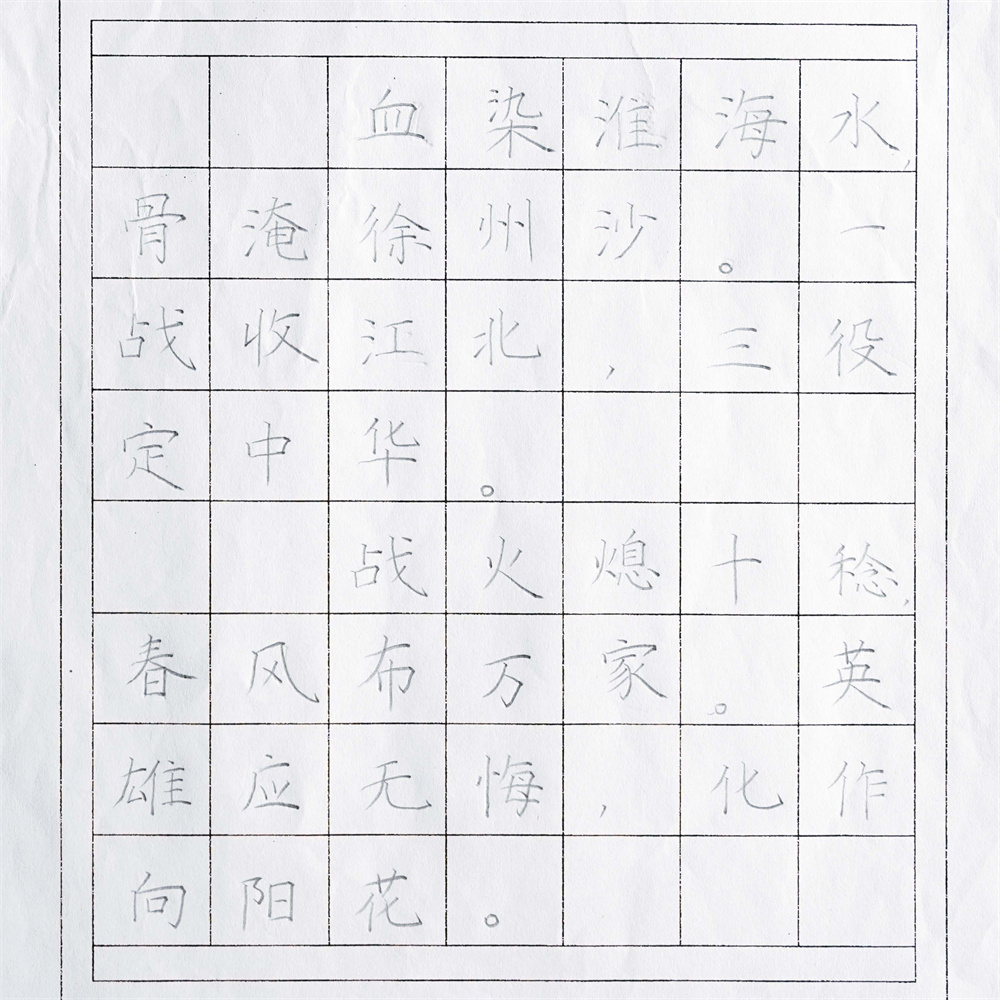 血染淮海水，
骨淹徐州沙。一
战收江北，三役
定中华。
战火熄十稔，
春风布万家。英
雄应无悔，化作
向阳花。